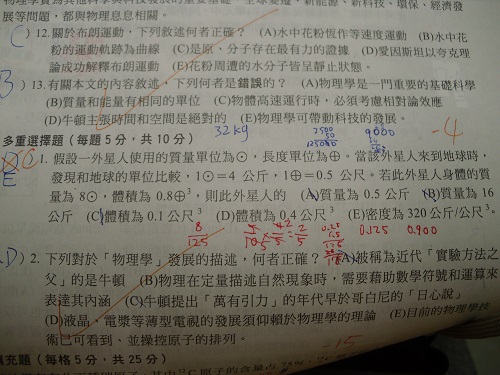 展等問題，都與物理息息相關。
C) 12. 關於布朗運動，下列敘述何者正確？ (A)水中花粉恆作等速度運動 (B)水中花
粉的運動軌跡為曲線 (C)是原、分子存在最有力的證據 (D)愛因斯坦以夸克理
論成功解釋布朗運動 (E)花粉周遭的水分子皆呈靜止狀態。
B) 13. 有關本文的內容敘述，下列何者是錯誤的？ (A)物理學是一門重要的基礎科學
(B)質量和能量有相同的單位 (C)物體高速運行時，必須考慮相對論效應
(D)牛頓主張時間和空間是絕對的 (E)物理學可帶動科技的發展。
多重選擇題（每題 5 分，共 10 分） 32kg 9000 -4
E 1. 假設一外星人使用的質量單位為⊙，長度單位為⊕。當該外星人來到地球時，
發現和地球的單位比較，1⊙＝4 公斤，1⊕＝0.5 公尺。若此外星人身體的質
量為 8⊙，體積為 0.8⊕³，則此外星人的 (A)質量為 0.5 公斤 (B)質量為 16
公斤 (C)體積為 0.1 公尺³ (D)體積為 0.4 公尺³ (E)密度為 320 公斤/公尺³。
8/125 0.125 0.900
D) 2. 下列對於「物理學」發展的描述，何者正確？ (A)被稱為近代「實驗方法之
父」的是牛頓 (B)物理在定量描述自然現象時，需要藉助數學符號和運算來
表達其內涵 (C)牛頓提出「萬有引力」的年代早於哥白尼的「日心說」
(D)液晶、電漿等薄型電視的發展須仰賴於物理學的理論 (E)目前的物理學技
術已可看到、並操控原子的排列。 -15
填充題（每格 5 分，共 25 分）